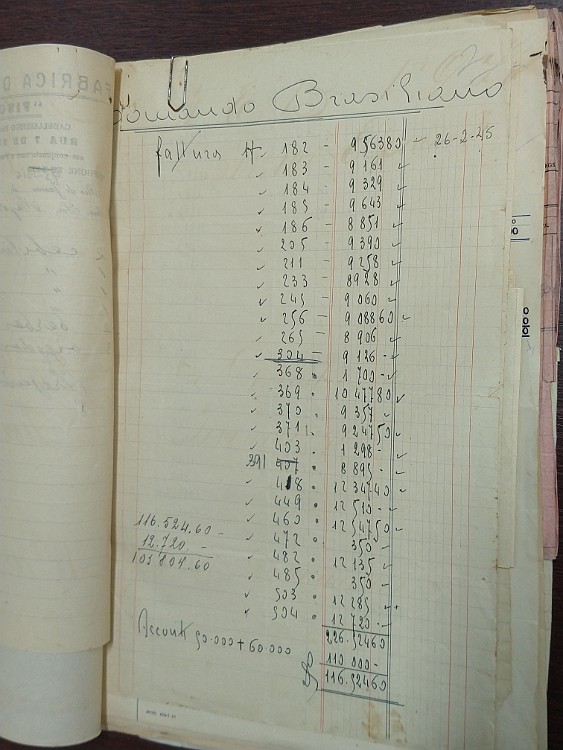 FABRICA D
RUA 7 DE
omando Brasiliano
fattura N. 182 - 956380 26-2-25
183 - 9161
184 - 9329
185 - 9643
186 - 8851
205 - 9390
211 - 9258
233 - 8928
245 - 9060
256 - 908860
265 - 8906
304 - 9126 -
368 1700 -
369 1047780
370 9357
371 924750
403 1298 -
391 407 8895 -
418 1234740
449 12510 -
460 1254750
472 350 -
482 12135
485 350 -
503 12285
504 12720 -
116.524.60 -
12.720. -
103.804.60
226.52460
Acconti 50.000 + 60.000
110 000 -
116.52460